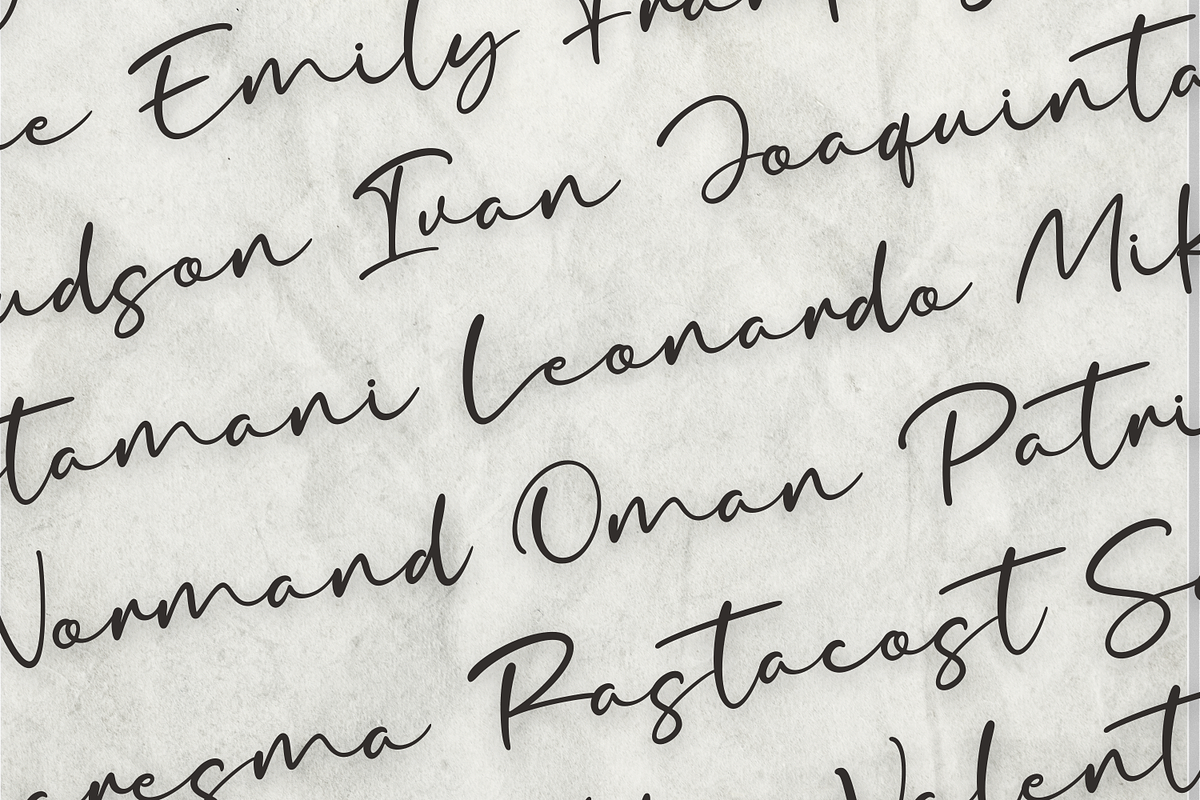 Emily
udson Ivan Joaquinta
tamani Leonardo Mik
Normand Oman Patri
aresma Rastacost S
Valent